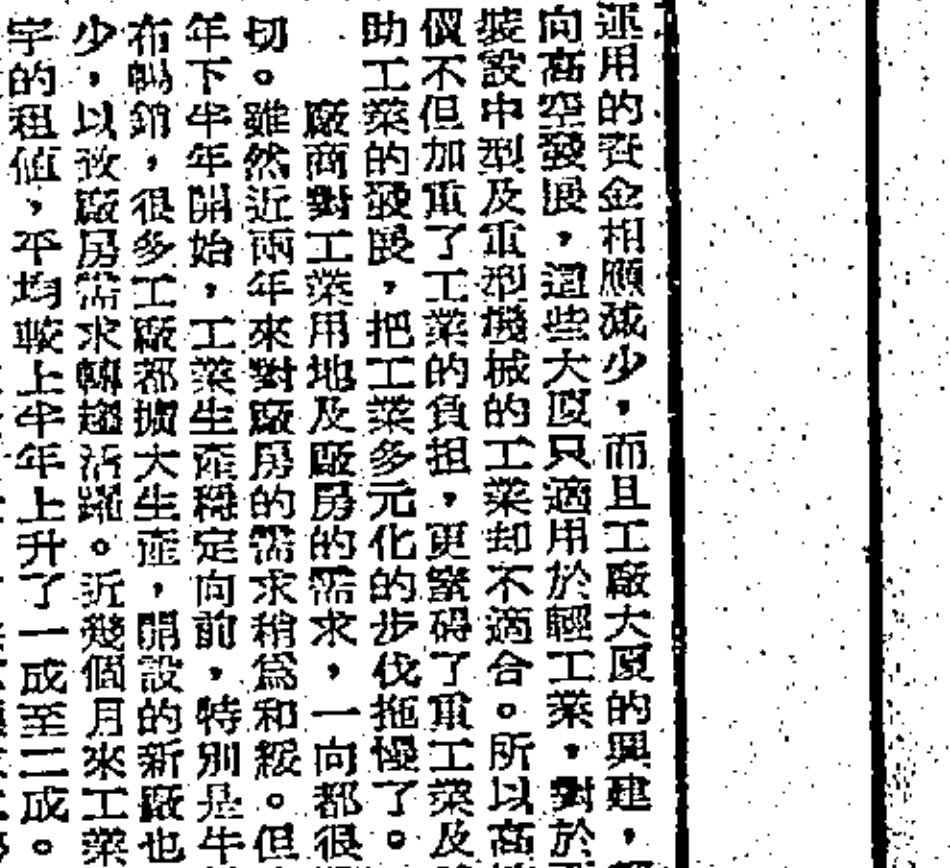 運用的資金相應減少，而且工廠大厦的興建，
向高空發展，這些大厦只適用於輕工業，對於
裝設中型及重型機械的工業却不適合。所以高
價不但加重了工業的負担，更窒碍了重工業及
助工業的發展，把工業多元化的步伐拖慢了。
廠商對工業用地及廠房的需求，一向都很
切。雖然近兩年來對廠房的需求稍爲和緩。但
年下半年開始，工業生產穩定向前，特別是牛
布暢銷，很多工廠都擴大生產，開設的新廠也
少，以致廠房需求轉趨活躍。近幾個月來工業
宇的租值，平均較上半年上升了一成至二成。